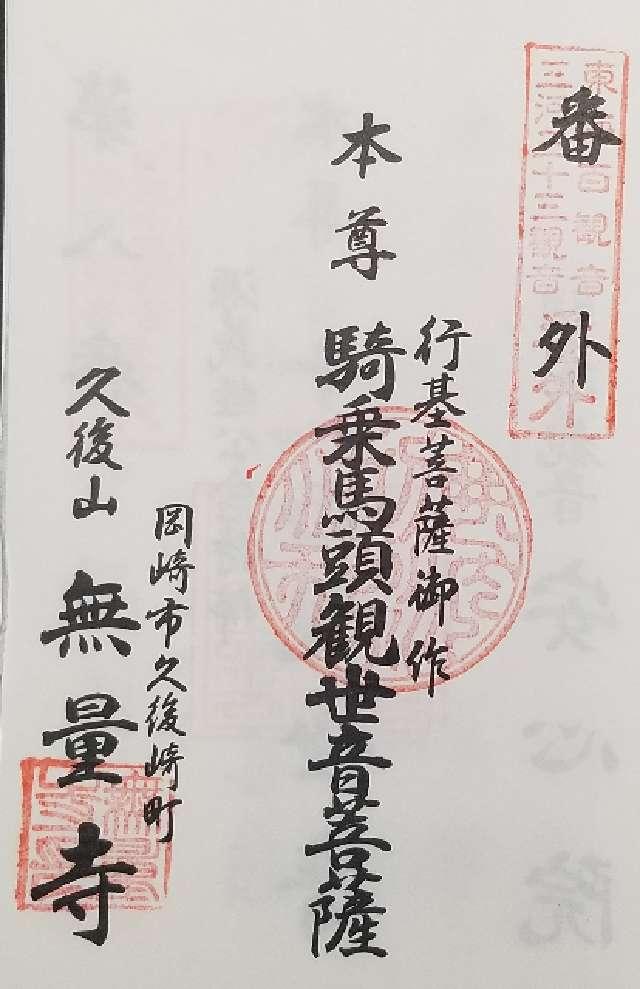 番外
東海百観音
三河三十三観音
番外
行基菩薩御作
本尊 騎乗馬頭観世音菩薩
岡崎市久後崎町
久後山 無量寺